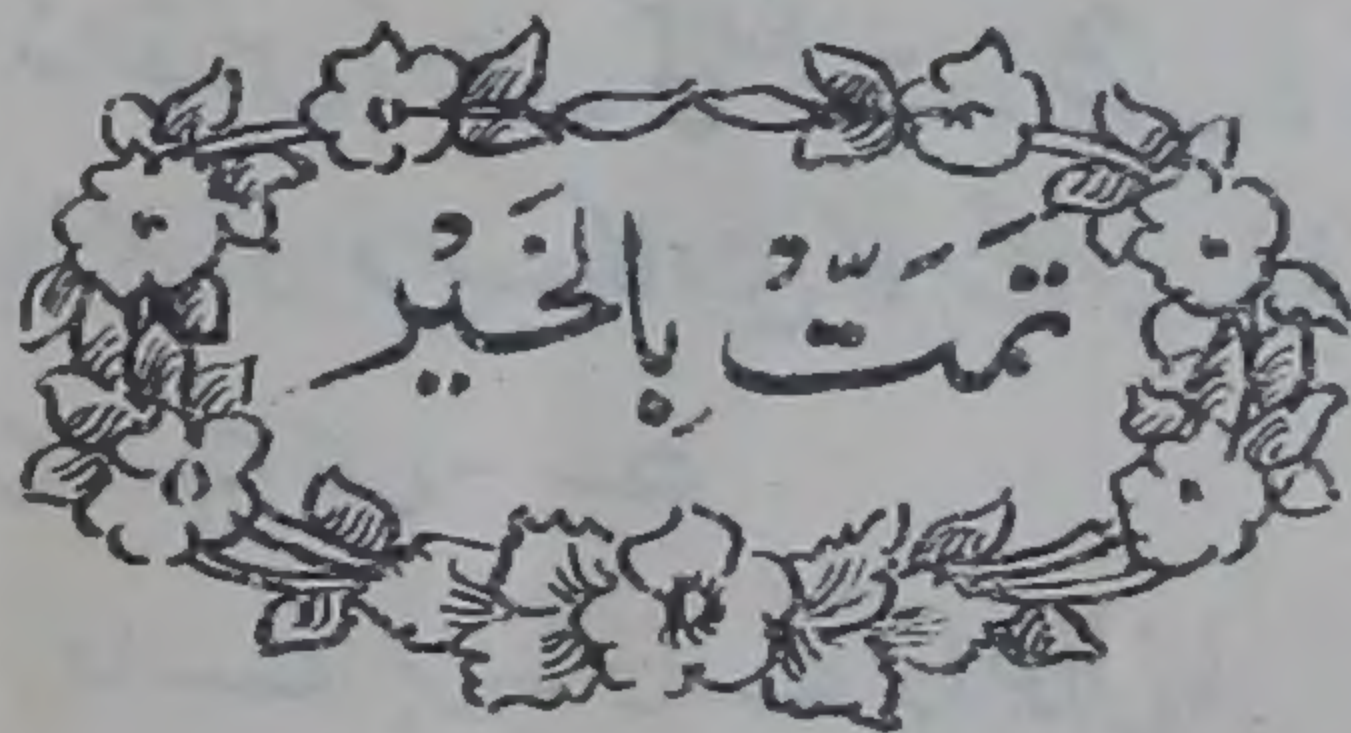 تَمَّتْ بِالْخَيْرْ